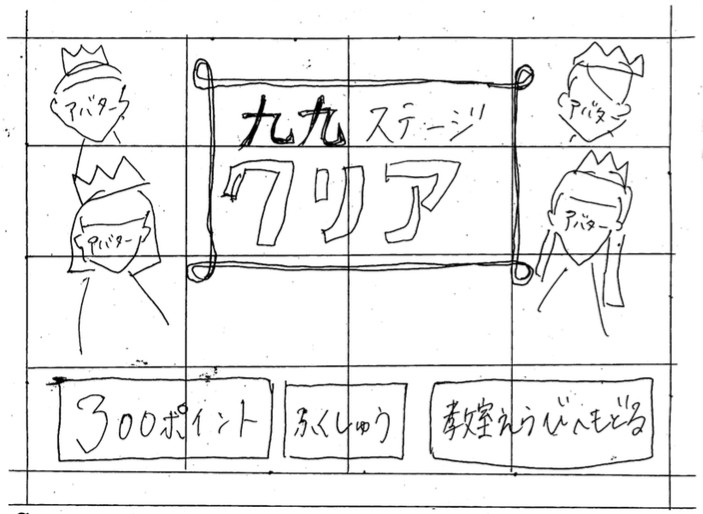 アバター
アバター
九九 ステージ
クリア
アバター
アバター
300ポイント
ふくしゅう
教室えらびへもどる